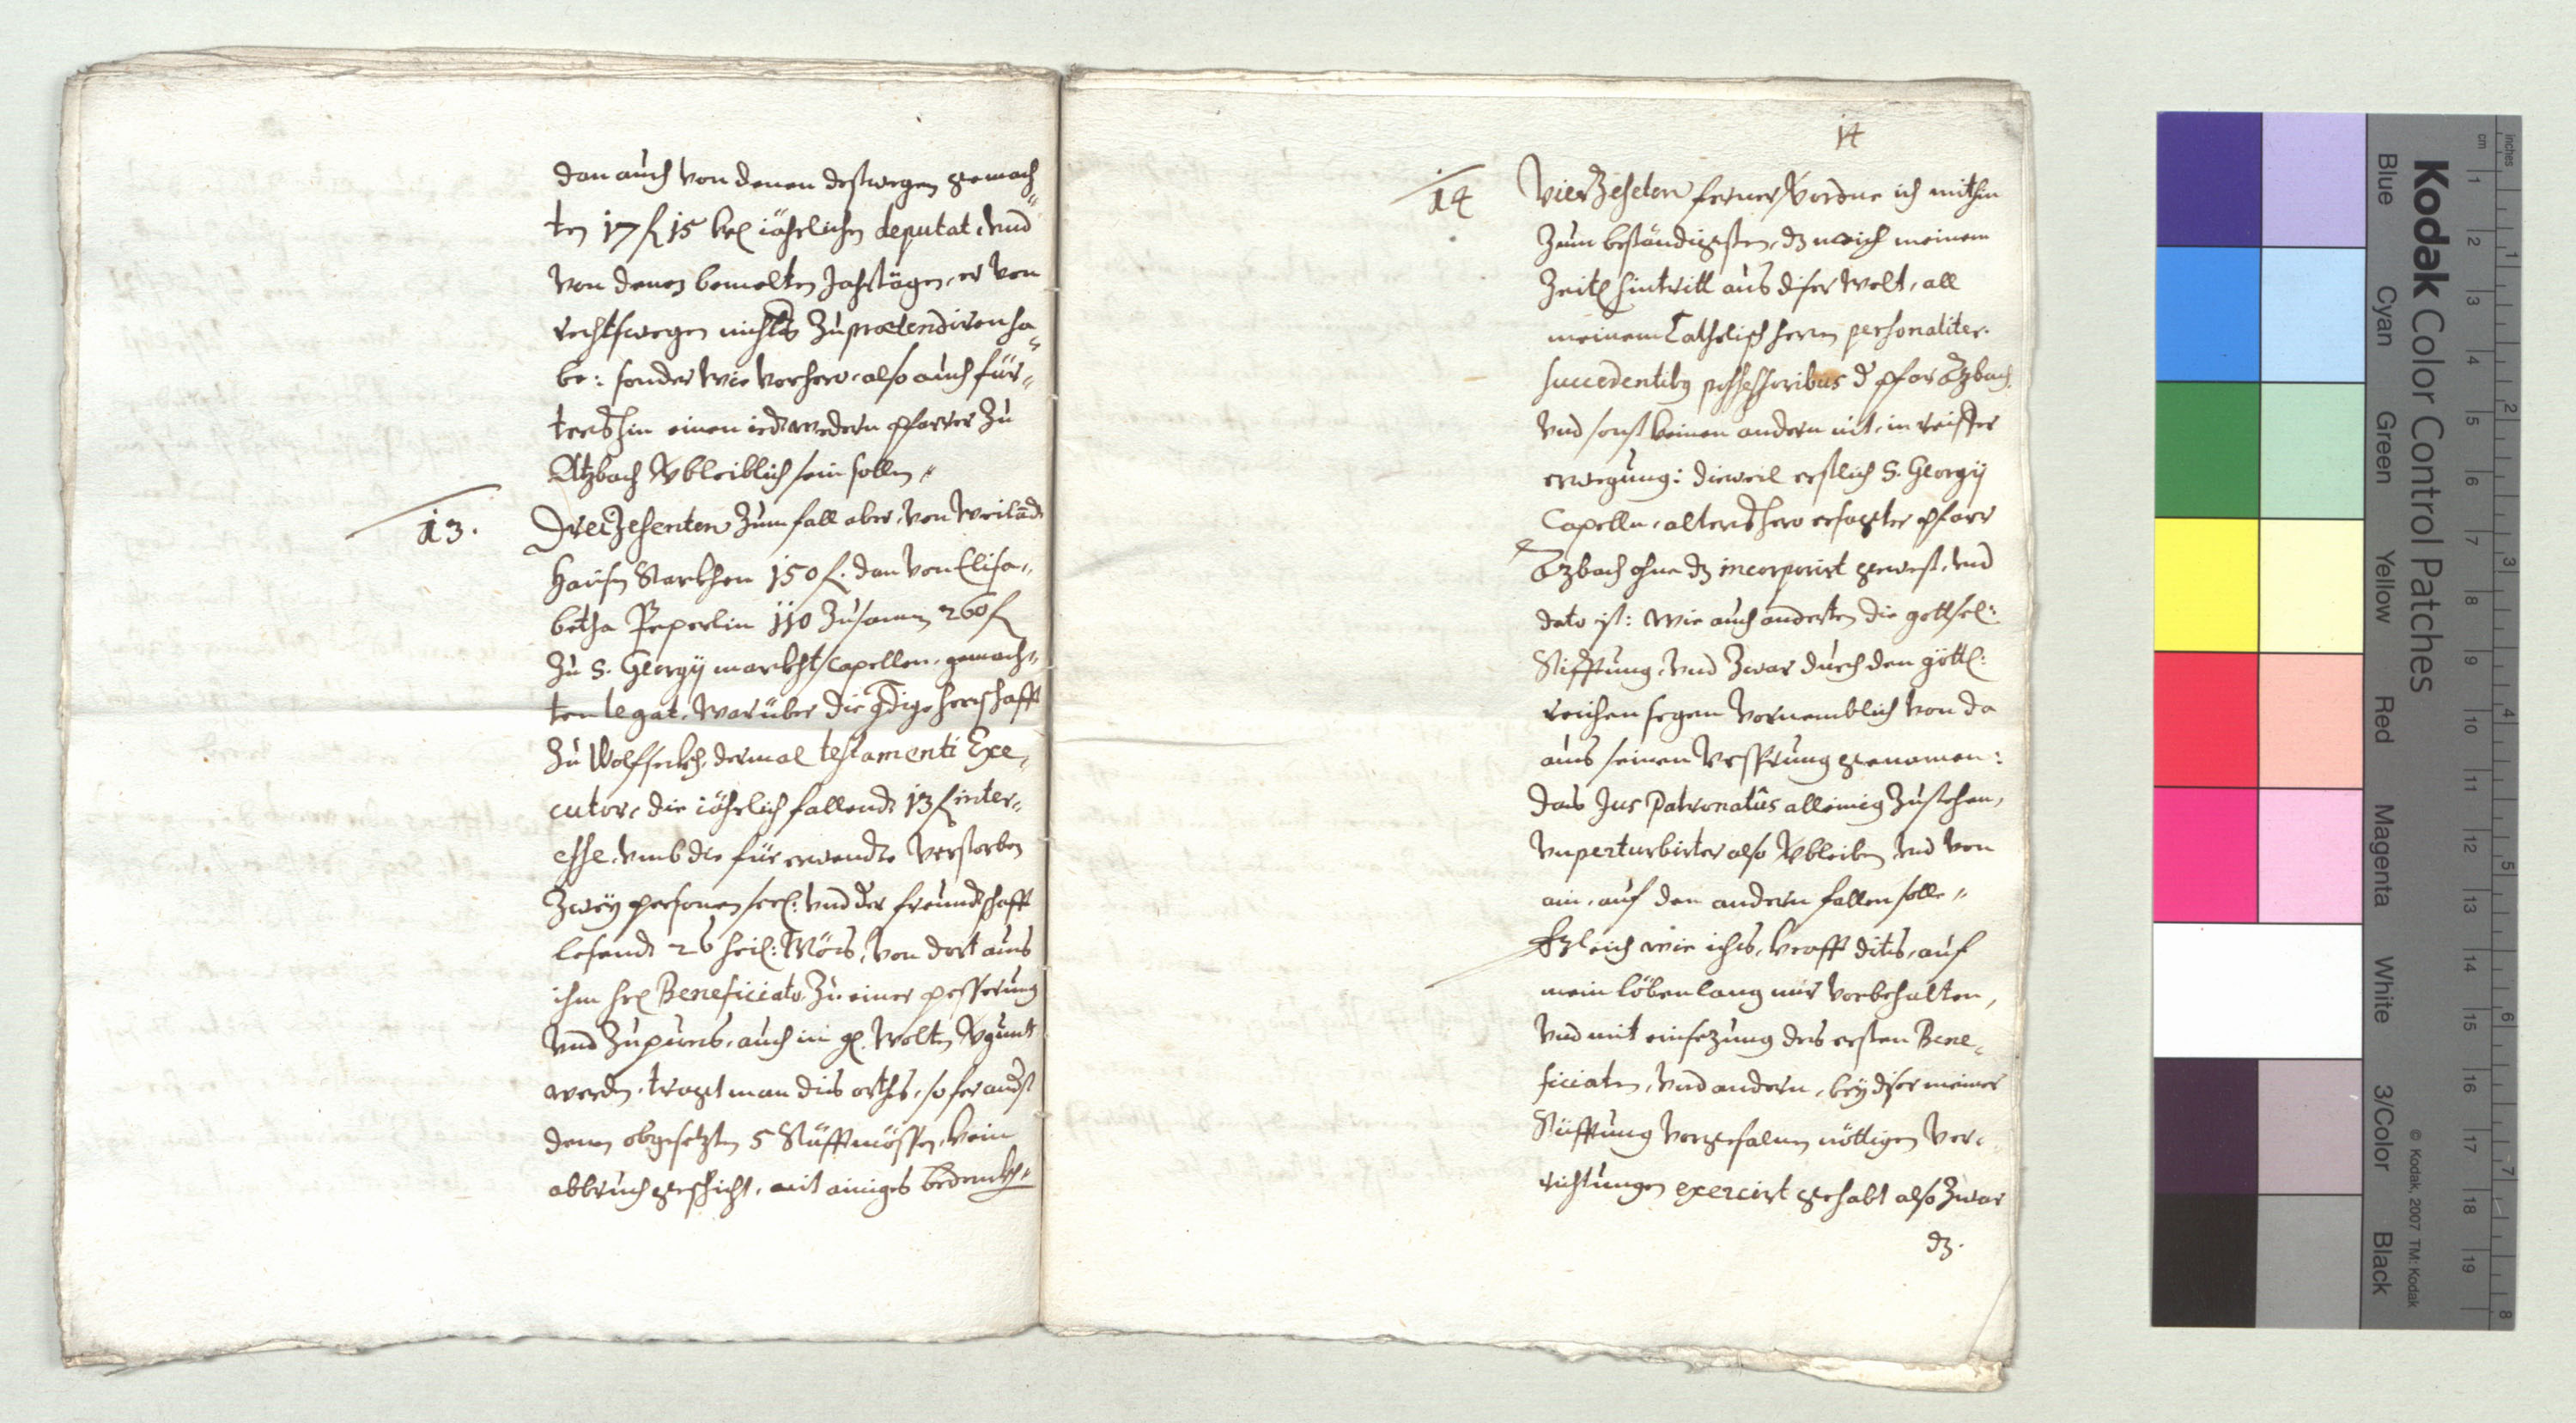 dan auch von denen deßwegen gemach„
ten 17 fl 15 krl jährlichen deputat, und
von denen bemelten Jahrtägen, er von
rechtswegen nichts zu prætendiren ha„
be: sonder wie vorhero, also auch für„
terßhin einen iedtwedern pfarrer zu
Atzbach vbleiblich sein sollen„
13. Dreizehenten zum fall aber, von weilãdt
Hansen Starkhen 150 fl. dan von Elisa„
betha Peperlin 110 zusamen 260 fl
zu S. Georgij markht Capellen, gemach„
ten legat, warüber die gdige herrschafft
zu Wolfseckh, dermal testamenti Exe„
cutor, die jährlich fallende 13 fl inter„
esse, vmb die für erwendte verstorben
zwey personen seel: vnd der freundtschafft
lesende 26 heil: Mößs, von dort aus
ihm hrl Beneficiato, zu einer pesserung
vnd zupueß, auch in gl. wolten vgunt
werden, tragt man dis orths, so fer andst
denen obgesetzten 5 Stüfftmössen, kein
abbruch geschicht, nit ainiges bedenckh„
14
14 Vierzeheten ferner, vordne ich mithin
zum beständigsten, dz nach meinem
zeitl hintritt aus diser welt, all
meinem Catholisch herrn personaliter
succedentibus possessoribus d pfar Azbach
vnd sonst keinen andern nit, in reiffer
erwegung: dieweil erstlich S. Georgij
Capelln, altershero ersagter pfarr
Azbach ohne dz incorporirt gewest, vnd
dato ist: wie auch anderten die gottsel:
Stifftung, vnd zwar durch den göttl:
reichen segen vornemblich von da
aus seinen vrsprung genomen:
das Jus Patronatûs alleinig zustehen,
vnperturbirter also vbleiben, vnd von
ain, auf den andern fallen solle„
Gleich wie ichs, krafft ditß, auf
mein löbenlang mir vorbehalten,
vnd mit einsezung des ersten Bene„
ficiaten, vnd andern, bey diser meiner
Stüfftung vorgefalnen nöttigen ver„
richtungen exercirt gehabt also zwar
dz.
Kodak Color Control Patches
Blue Cyan Green Yellow Red Magenta White 3/Color Black
© Kodak, 2007 TM: Kodak
inches 1 2 3 4 5 6 7 8
cm 1 2 3 4 5 6 7 8 9 10 11 12 13 14 15 16 17 18 19